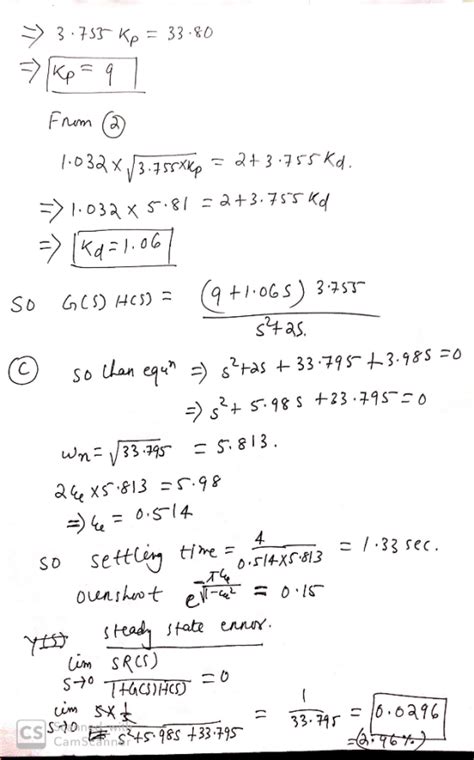 ⇒ 3.755 Kp = 33.80
⇒ Kp = 9
From ②
1.032 × √3.755×Kp = 2 + 3.755 Kd.
⇒ 1.032 × 5.81 = 2 + 3.755 Kd
⇒ Kd = 1.06
so G(s) H(s) = (9 + 1.06s) 3.755 / s²+2s.
(C) so chan equⁿ ⇒ s²+2s + 33.795 + 3.98s = 0
⇒ s² + 5.98s + 33.795 = 0
wn = √33.795 = 5.813.
2 × 5.813 = 5.98
⇒ = 0.514
so settling time = 4 / 0.514×5.813 = 1.33 sec.
overshoot e = 0.15
steady state error.
lim s→0 SR(s) / 1+G(s)H(s) = 0
lim s→0 s×1/s / s²+5.98s+33.795 = 1 / 33.795 = 0.0296
= (2.96%)
CS CamScanner